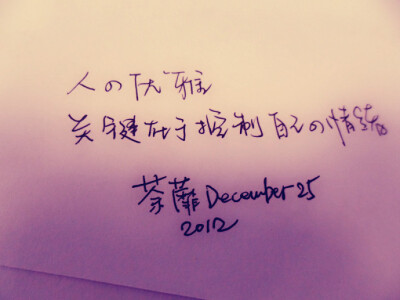 人の优雅
关键在于控制自己の情绪
荼蘼 December 25
2012